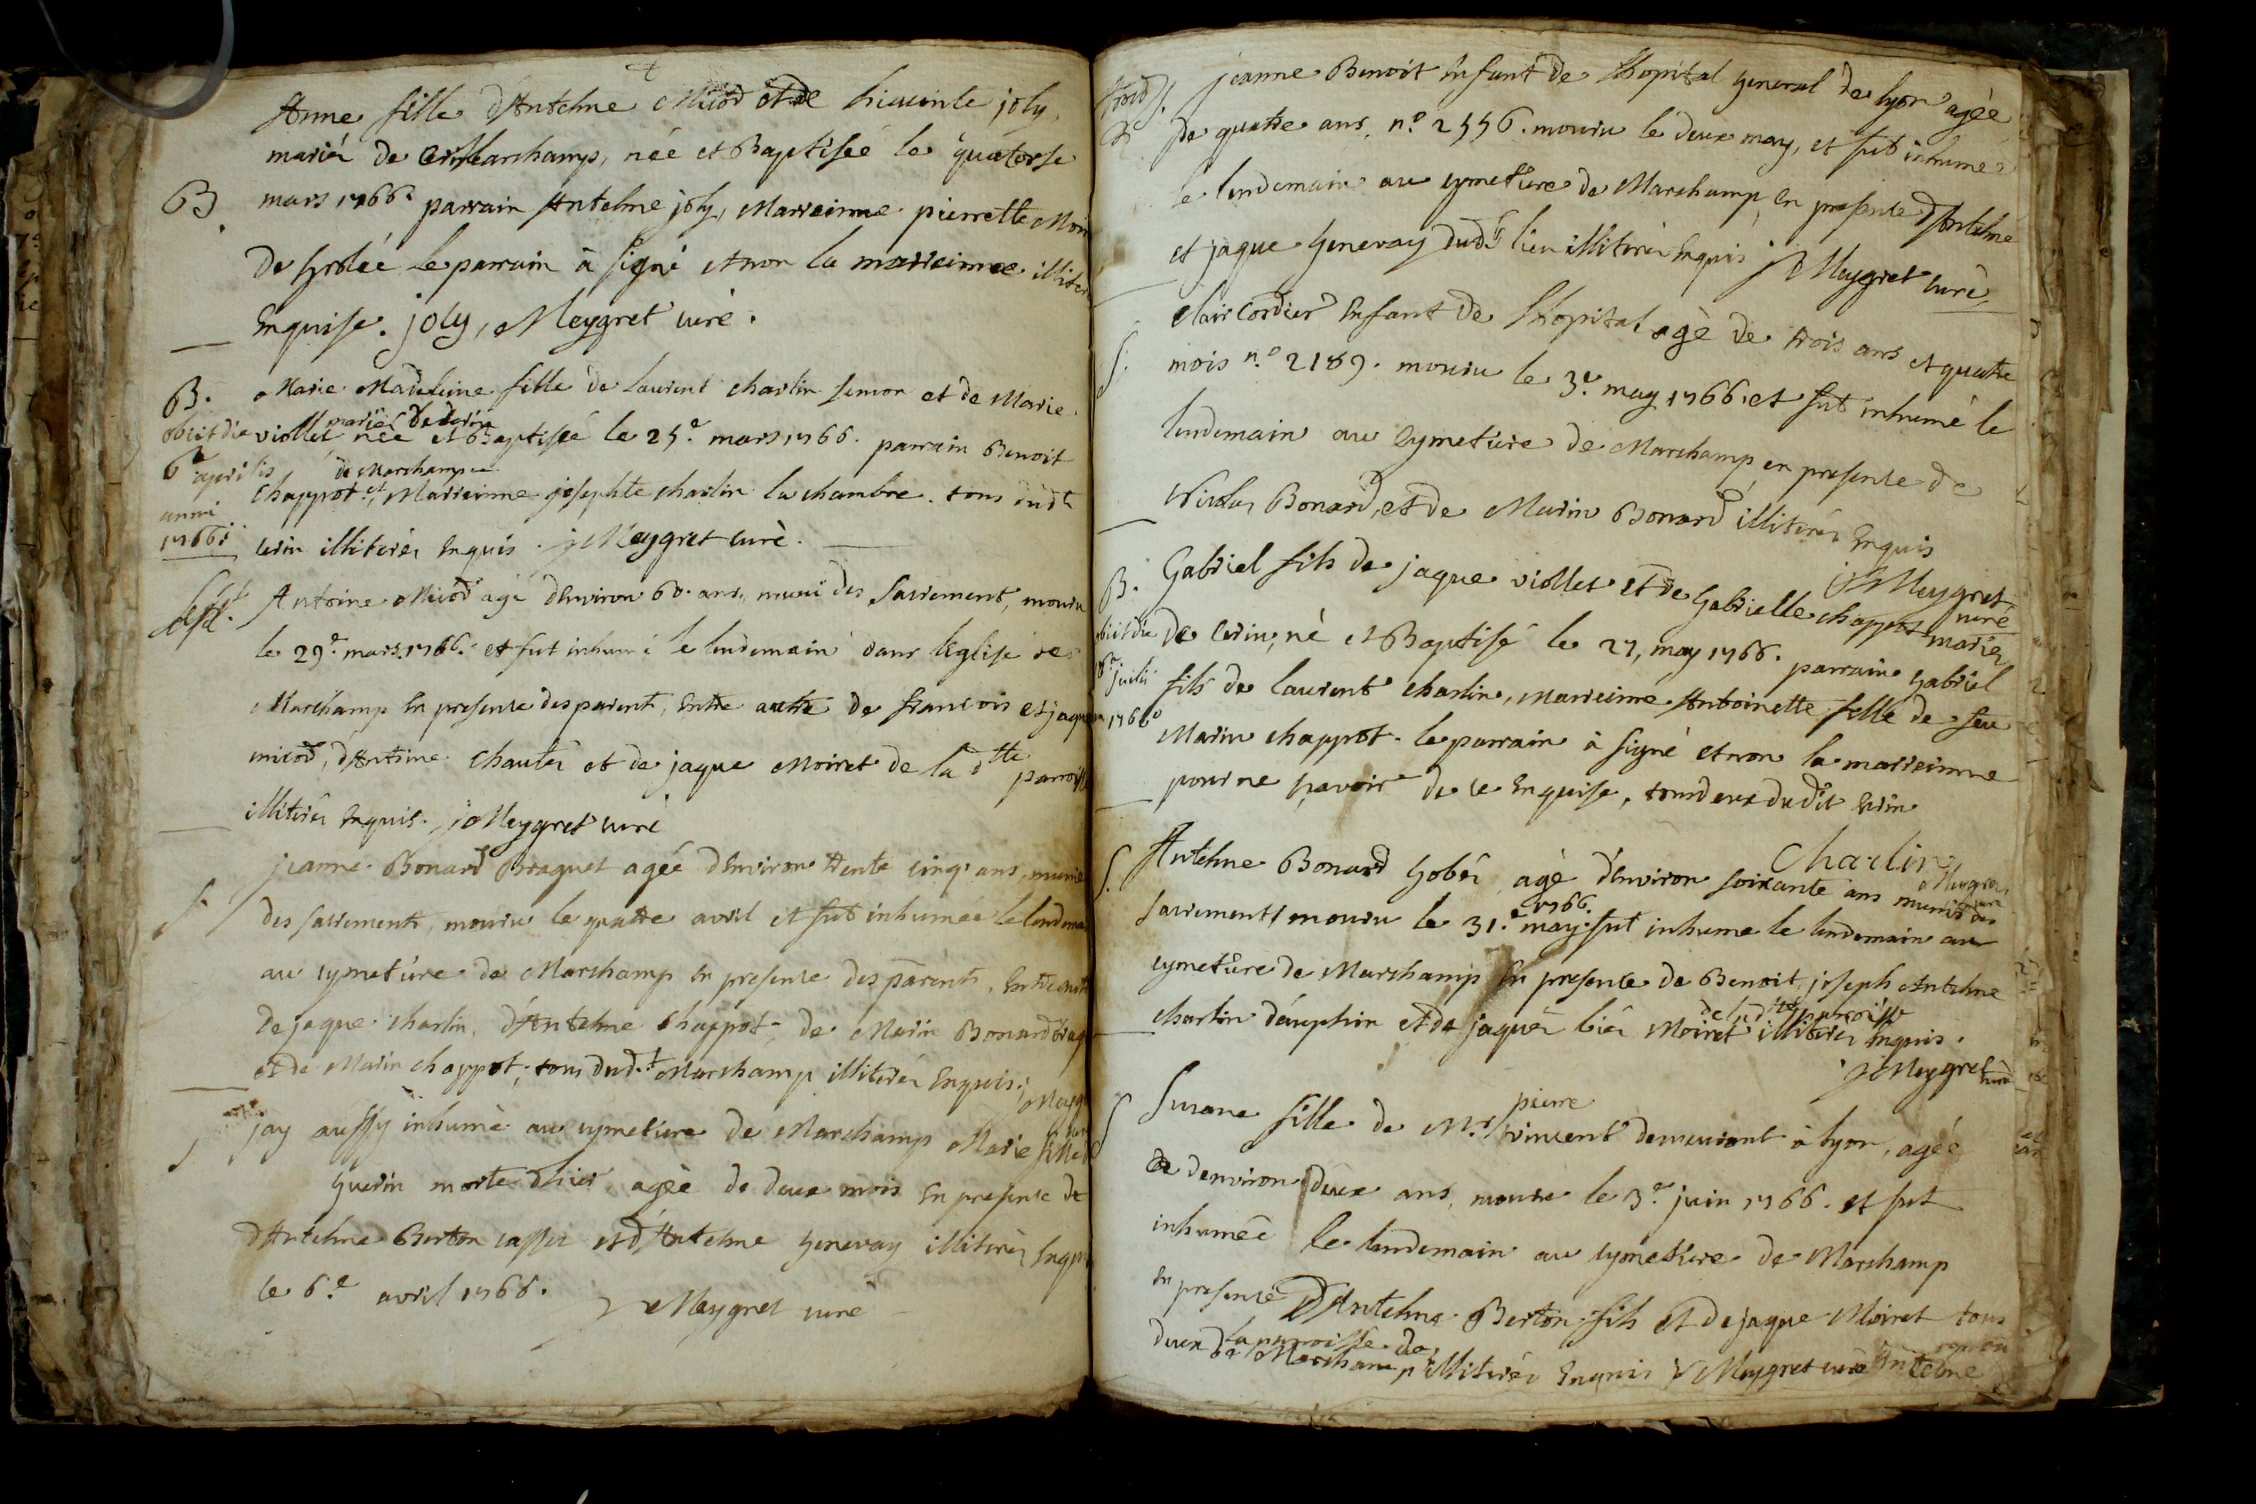 Anne fille d'Antelme Micod et de hiacinte joly,
mariés de Marchamp, née et Baptisée le quatorse
B.
mars 1766. parrain Antelme joly, Marreinne pierrette
de grolée le parrain à signé et non la marreinne
Enquise. joly, Meygret curé.
B. Marie Madeleine fille de laurent charlin simon et de Marie
mariés de cerin
obiit die viollet née et Baptisée le 25.e mars 1766. parrain Benoit
de Marchamp
6a aprilis chappot et Marreinne josephte charlin la chambre tous dudt
anni
1766. cerin illiterés Enquis. j Meygret curé.
Sept. Antoine Micod agé d'Environ 60. ans, muni des Sacrement, mouru
le 29.e mars 1766. et fut inhumé le lendemain dans l'Eglise de
Marchamp En presence des parents, Entre autre de francois et jaque
micod, d'Antoine et de jaque Moiret de la dtte parroisse
illiterés Enquis. j Meygret curé
S. jeanne Bonard Braguet agée d'Environ trente cinq ans, munie
des sacrements, mouru le quatre avril et fut inhumée le
au cymetiere de Marchamp En presence des parents, Entre
de jaque charlin, d'Antelme chappot, de Marin Bonard
et de Marin chappot, tous dud.t Marchamp illiterés Enquis j
S jay aussy inhumé au cymetiere de Marchamp Marie
guerin morte d'hier, agèe de deux mois En presence de
d'Antelme Berton et d'Antelme genevay illiterés
le 6.e avril 1766. j Meygret curé
S. jeanne Benoit Enfant de lhopital general de lyon agèe
de quatre ans, n.o 2556. mouru le deux may, et fut inhumée
le lendemain au cymetiere de Marchamp En presence d'Antelme
et jaque genevay dudt lieu illiterés Enquis j Meygret curé
Clair Cordier Enfant de lhopital agè de trois ans et quatre
S. mois n.o 2189. mouru le 3.e may 1766. et fut inhumé le
lendemain au cymetiere de Marchamp en presence de
Nicolas Bonard, et de Marin Bonard illiterés Enquis
j Meygret
curé
B. Gabriel fils de jaque viollet et de Gabrielle chappot mariés
obiit die de Cerin, né et Baptisé le 27, may 1766. parrain gabriel
julii fils de laurent charlin, Marreinne Antoinette fille de feu
1766 Marin chappot. le parrain à signé et non la marreinne
pour ne sçavoir de ce Enquise, tous deux dudit Cerin
Charlin Meygret
curé
S. Antelme Bonard agè d'Environ soixante ans munis des
1766.
sacrements mouru le 31.e may fut inhume le lendemain au
cymetiere de Marchamp En presence de Benoit, joseph Antelme
de la dtte parroisse
charlin dauphin et de Moiret illiterés Enquis.
j Meygret curé
pierre
S Susane fille de M.r vincent demeurant à lyon, agée
d'environ deux ans, mouru le 3.e juin 1766. et fut
inhumée le lendemain au cymetiere de Marchamp
En presence d'Antelme Berton fils et de jaque Moiret tous
la parroisse de
deux de Marchamp illiterés Enquis j Meygret curé Antelme